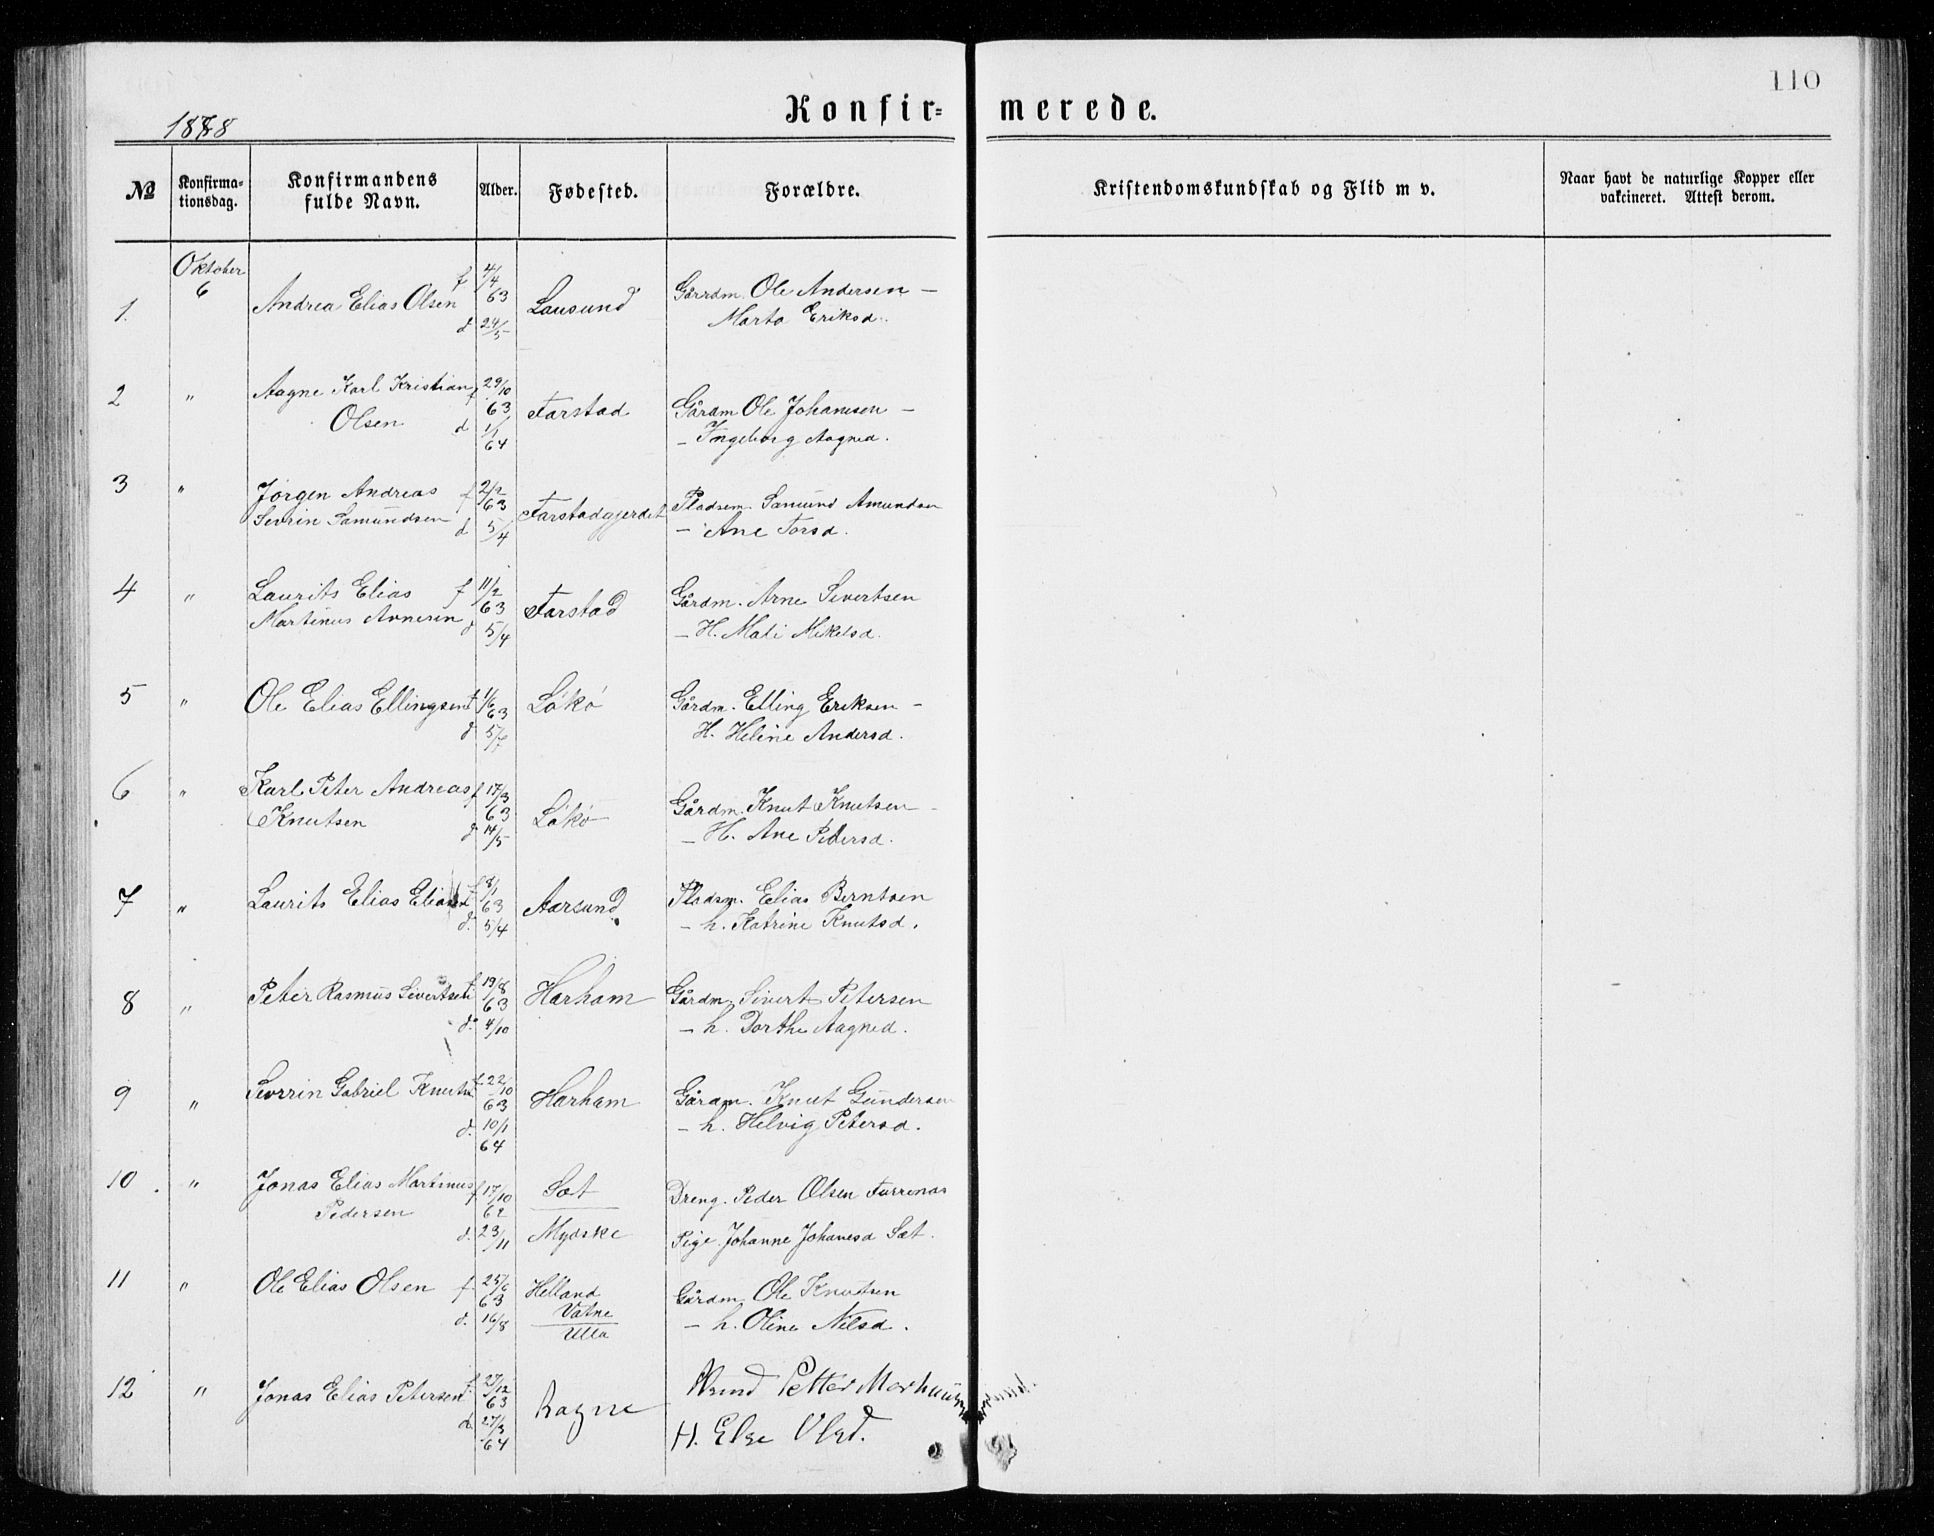 110
1878
Konfir= merede.
№
Konfirma-
tionsdag.
Konfirmandens
fulde Navn.
Alder.
Fødested.
Forældre.
Kristendomskundskab og Flid m v.
Naar havt de naturlige Kopper eller
vakcineret. Attest derom.
Oktober
6
1. Andrea Elias Olsen f 4/4 63 d 24/5 Lausund Gårdm. Ole Andersen —
Marta Eriksd.
2 " Aagne Karl Kristian f 29/10 63 Farstad Gårdm Ole Johanesen —
Olsen d 1/1 64 — Ingeborg Aagned.
3 " Jørgen Andreas f 2/2 63 Farstadgjerdet Pladsem. Samund Amundsen
Sevrin Samundsen d 5/4 — Ane Torsd.
4 " Laurits Elias f 11/2 63 Farstad Gårdm. Arne Sivertsen
Martinus Arnesen d 5/4 — H. Mali Mikelsd.
5 " Ole Elias Ellingsen f 1/6 63 Løkø Gårdm. Elling Eriksen —
d 5/7 H. Heline Andersd.
6 " Karl Peter Andreas f 17/3 63 Løkø Gårdm. Knut Knutsen —
Knutsen d 14/5 — H. Ane Petersd.
7 " Laurits Elias Eliassen f 8/1 63 Aarsund Pladsm. Elias Berntsen
d. 5/4 — h. Katrine Knutsd.
8 " Peter Rasmus Sivertsen f 19/8 63 Harham Gårdm Sivert Petersen
d. 4/10 — h. Dorthe Aagned.
9 " Sevrin Gabriel Knuts f 22/10 63 Harham Gårdm. Knut Gundersen
d. 10/1 64 — h. Helvig Petersd.
10. " Jonas Elias Martinus f 17/10 62 Sæt Dreng. Peder Olsen
Pedersen d. 23/11 Mydske Pige Johanne Johanesd Sæt.
11 " Ole Elias Olsen f. 25/6 63 Helland Gårdm Ole Knutsen
Vatne
d. 16/8 Ulla — h. Oline Nilsd.
12 " Jonas Elias Petersen f. 27/12 63 Ragne Petter
d. 27/3 64 H. Else Olsd.